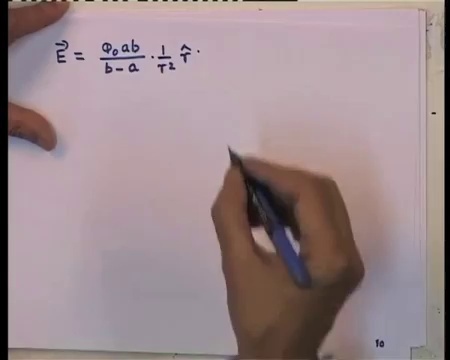 E⃗ = Φ₀ab/(b−a) · 1/r² r̂.
10